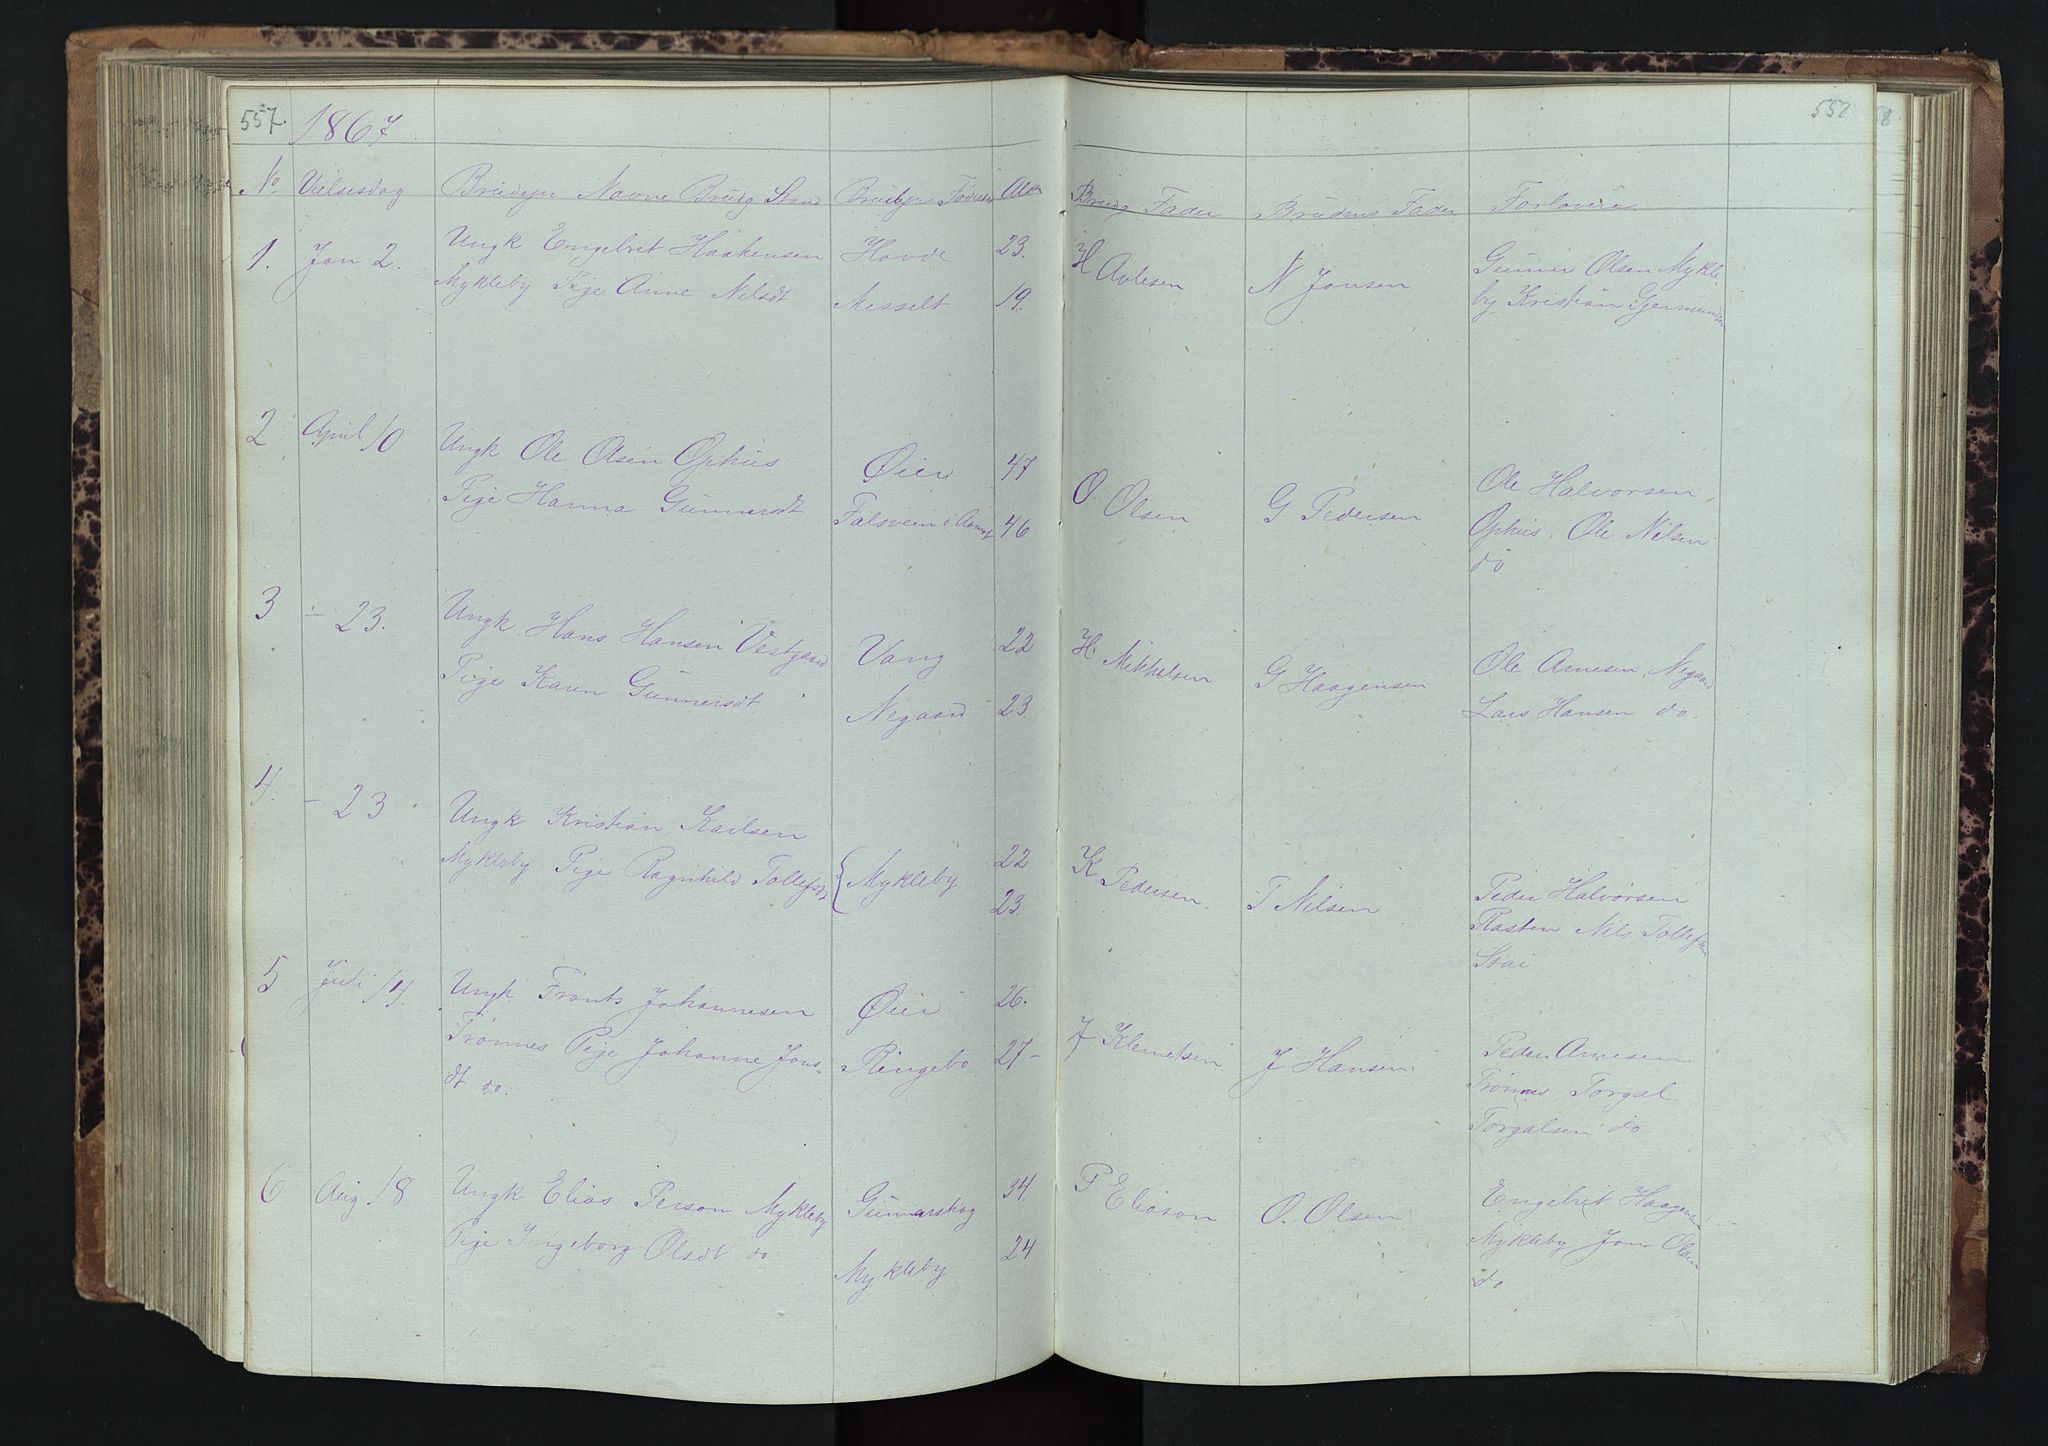 557.
1867
558
No Vielsesdag Brudep Navne Brudg Stand Brudep Fødest Alder Brudg Fader Brudens Fader Forlovere
1. Jan 2. Ungk Engebret Haakensen Hovde 23. H Avlesen N Jonsen Gunner Olsen Mykle
Mykleby Pige Anne Nilsdt Messelt 19. by Kristian Gjermundsen
2 April 10 Ungk Ole Olsen Ophus Øier 47 O Olsen G Pedersen Ole Halvorsen
Pige Hanna Gunnersdt i Aamot 46 Ophus. Ole Nilsen
do
3 - 23. Ungk Hans Hansen Vestgaard Vang 22 H. Mikkelsen G Haagensen Ole Arnesen, Negaard
Pige Karen Gunnersdt Negaard 23. Lars Hansen do.
4. - 23 Ungk Kristian Karlsen
Mykleby Pige Ragnhild Tollefsdt Mykleby 22 K Pedersen T Nilsen Peder Halvorsen
23. Rasten Nils Tollefsen
Stai
5 Juli 14. Ungk Frants Johannesen Øier 26. J Klemetsen J Hansen. Peder Arnesen
Trønnes Pige Johanne Jons- Ringebo 27- Trønnes Torgal
dt do. Torgalsen do
6 Aug. 18 Ungk Elias Person Mykleby Gunnarskog 34. P Eliason O. Olsen Engebret Haagensen
Pige Ingeborg Olsdt do Mykleby 24 Mykleby Jon Olsen
do